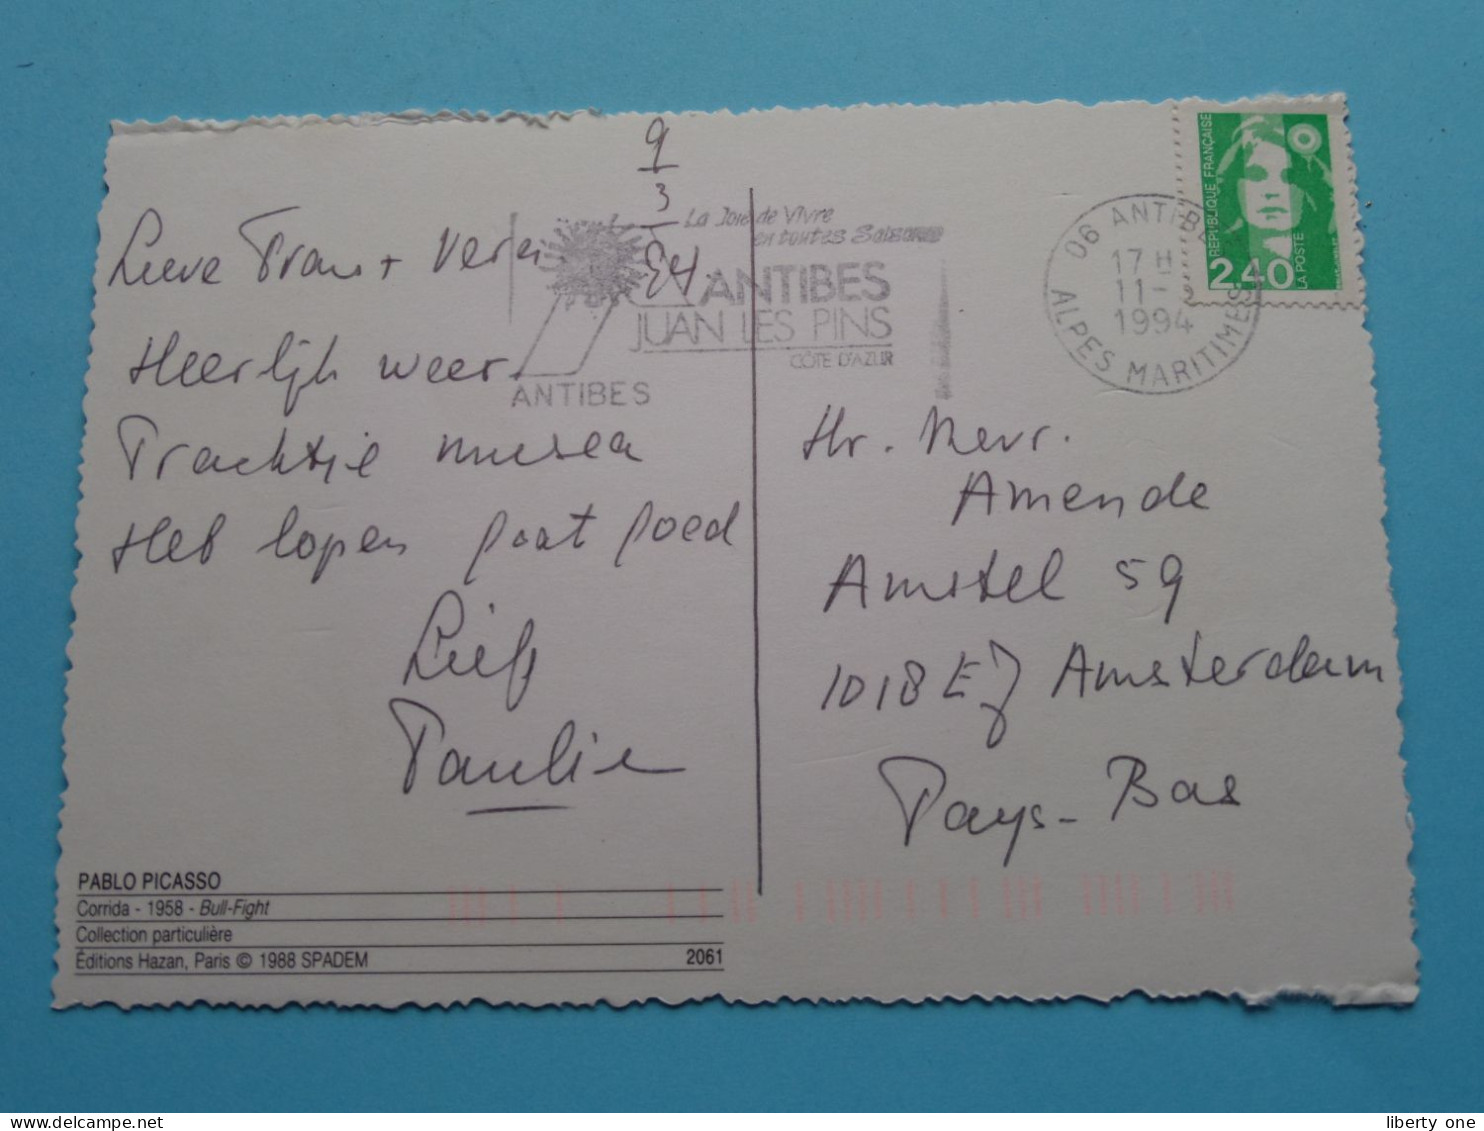 9
3
94
Lieve Frans + Veren
Heerlijk weer
Prachtije musea
Het lopen gaat goed
Liefs
Pauline
La Joie de Vivre
en toutes Saisons
ANTIBES
JUAN LES PINS
CÔTE D'AZUR
ANTIBES
06 ANTIBES
17 H
11-3
1994
ALPES MARITIMES
REPUBLIQUE FRANÇAISE
2,40
LA POSTE
Hr. Mevr.
Amende
Amstel 59
1018 EJ Amsterdam
Pays-Bas
PABLO PICASSO
Corrida - 1958 - Bull-Fight
Collection particulière
Éditions Hazan, Paris © 1988 SPADEM 2061
liberty one